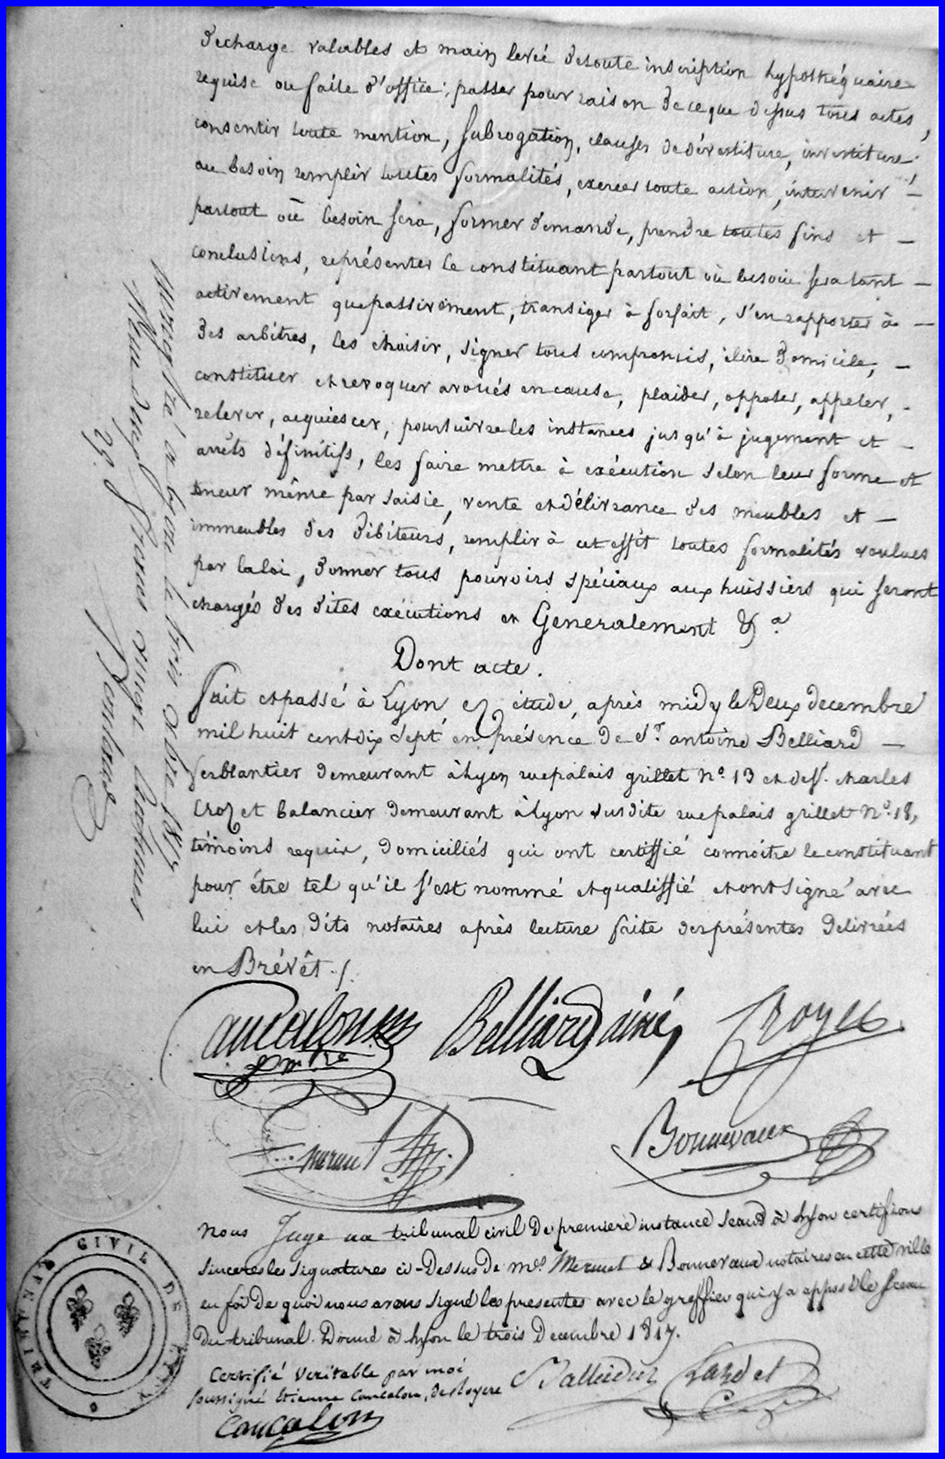 décharge valables et main levée detoute inscription hypothéquaire
requise ou faite d'office, passer pour raison de ce que dessus tous actes,
consentir toute mention, subrogation, clauses de dévestiture, investiture
au besoin remplir toutes formalités, exercer toute action, intervenir
partout où besoin sera, former demande, prendre toutes fins et
conclusions, représenter le constituant partout où besoin sera tant
activement que passivement, transiger à forfait, s'en rapporter à
des arbitres, les choisir, signer tous compromis, élire domicile,
constituer et revoquer avoués en cause, plaider, opposer, appeler,
relever, acquiescer, poursuivre les instances jusqu'à jugement et
arrêts définitifs, les faire mettre à exécution selon leur forme et
teneur même par saisie, vente et délivrance des meubles et
immeubles des débiteurs, remplir à cet effet toutes formalités voulues
par la loi, donner tous pouvoirs spéciaux aux huissiers qui seront
chargés des dites exécutions et Generalement &a
Dont acte.
fait et passé à Lyon étude, après midy le Deux decembre
mil huit cent dix sept en présence de Sr. antoine Belliard
ferblantier demeurant à Lyon rue palais grillet No. 13 et de Sr. charles
Crozet balancier demeurant à Lyon susdite rue palais grillet No. 18,
témoins requis, domiciliés qui ont certiffié connoitre le constituant
pour être tel qu'il s'est nommé et qualiffié et ont signé avec
lui et les dits notaires après lecture faite des présentes délivrées
en Brévêt.
Caucalon Belliard ainé Crozet
Bonnevaux
nous Juge au tribunal civil de premiere instance seant à Lyon certifions
sinceres les signatures ci-Dessus de mes. Mermet & Bonnevaux notaires en cette ville
en foi de quoi nous avons signé les presentes avec le greffier qui y a apposé le sceau
du tribunal. Donné à Lyon le trois Decembre 1817.
Certifié veritable par moi
soussigné Etienne Caucalon, destoyere
Caucalon
TRIBUNAL CIVIL DE LYON